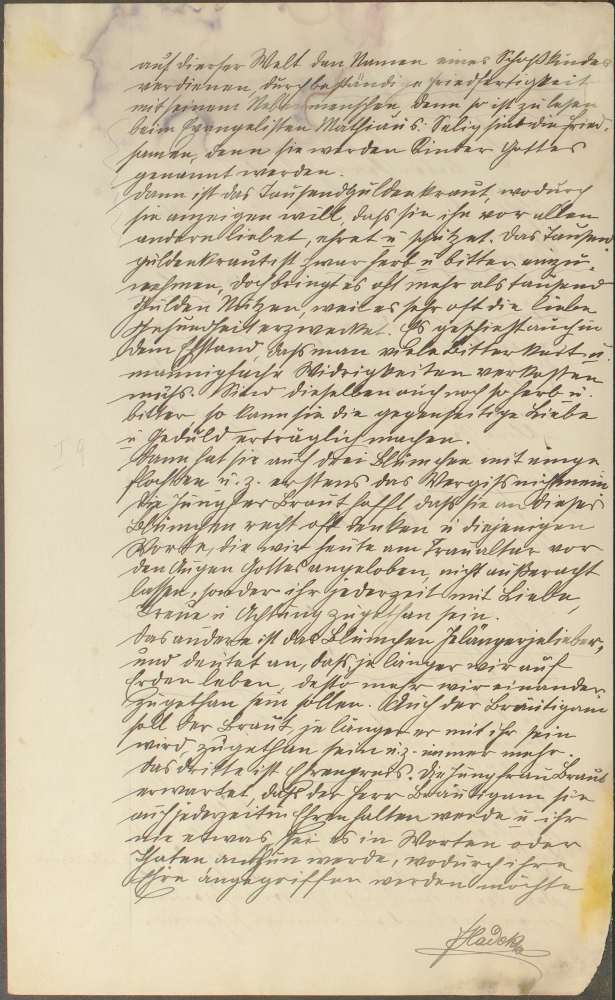 auf dieser Welt den Namen eines Schoßkindes
verdienen, durch beständige Friedfertigkeit
mit seinem Nebenmenschen, denn so ist zu lesen
beim Evangelisten Mathiaus: Selig sind die Fried-
samen, denn sie werden Kinder Gottes
genannt werden.
Dann ist das Tausendguldenkraut, wodurch
sie anzeigen will, dass sie ihn vor allen
andern liebet, ehret u schätzet. Das Tausend
guldenkraut ist zwar herb u bitter einzu-
nehmen, doch bringt es oft mehr als tausend
Gulden Nutzen, weil es sehr oft die liebe
Gesundheit erzwecket. Es geschieht auch in
dem Ehstand, dass man viele Bitterkeit u.
mannigfache Widrigkeiten verkosten
muss. Sind dieselben auch noch so herb u.
bitter, so kann sie die gegenseitige Liebe
u Geduld erträglich machen.
Dann hat sie auch drei Blümchen mit einge
flochten u. z. erstens das Vergissnichtmein
Die Jungfer Braut hofft dass sie an dieses
Blümchen recht oft denken u diejenigen
Worte, die wir heute am Traualtar vor
den Augen Gottes angeloben, nicht außeracht
lassen, sonder ihr jederzeit mit Liebe,
Treue u Achtung zugethan sein.
Das andere ist das Blümchen Jelängerjelieber,
und deutet an, dass, je länger wir auf
Erden leben, desto mehr wir einander
zugethan sein sollen. Auch der Bräutigam
soll der Braut, je länger er mit ihr sein
wird, zugethan sein u.z. immer mehr.
Das dritte ist Ehrenpreis. Die Jungfrau Braut
erwartet, dass der Herr Bräutigam sie
auch jederzeit in Ehren halten werde u ihr
nie etwas, sei es in Worten oder
Thaten anthun werde, wodurch ihre
Ehre angegriffen werden möchte
Hadek
I 9